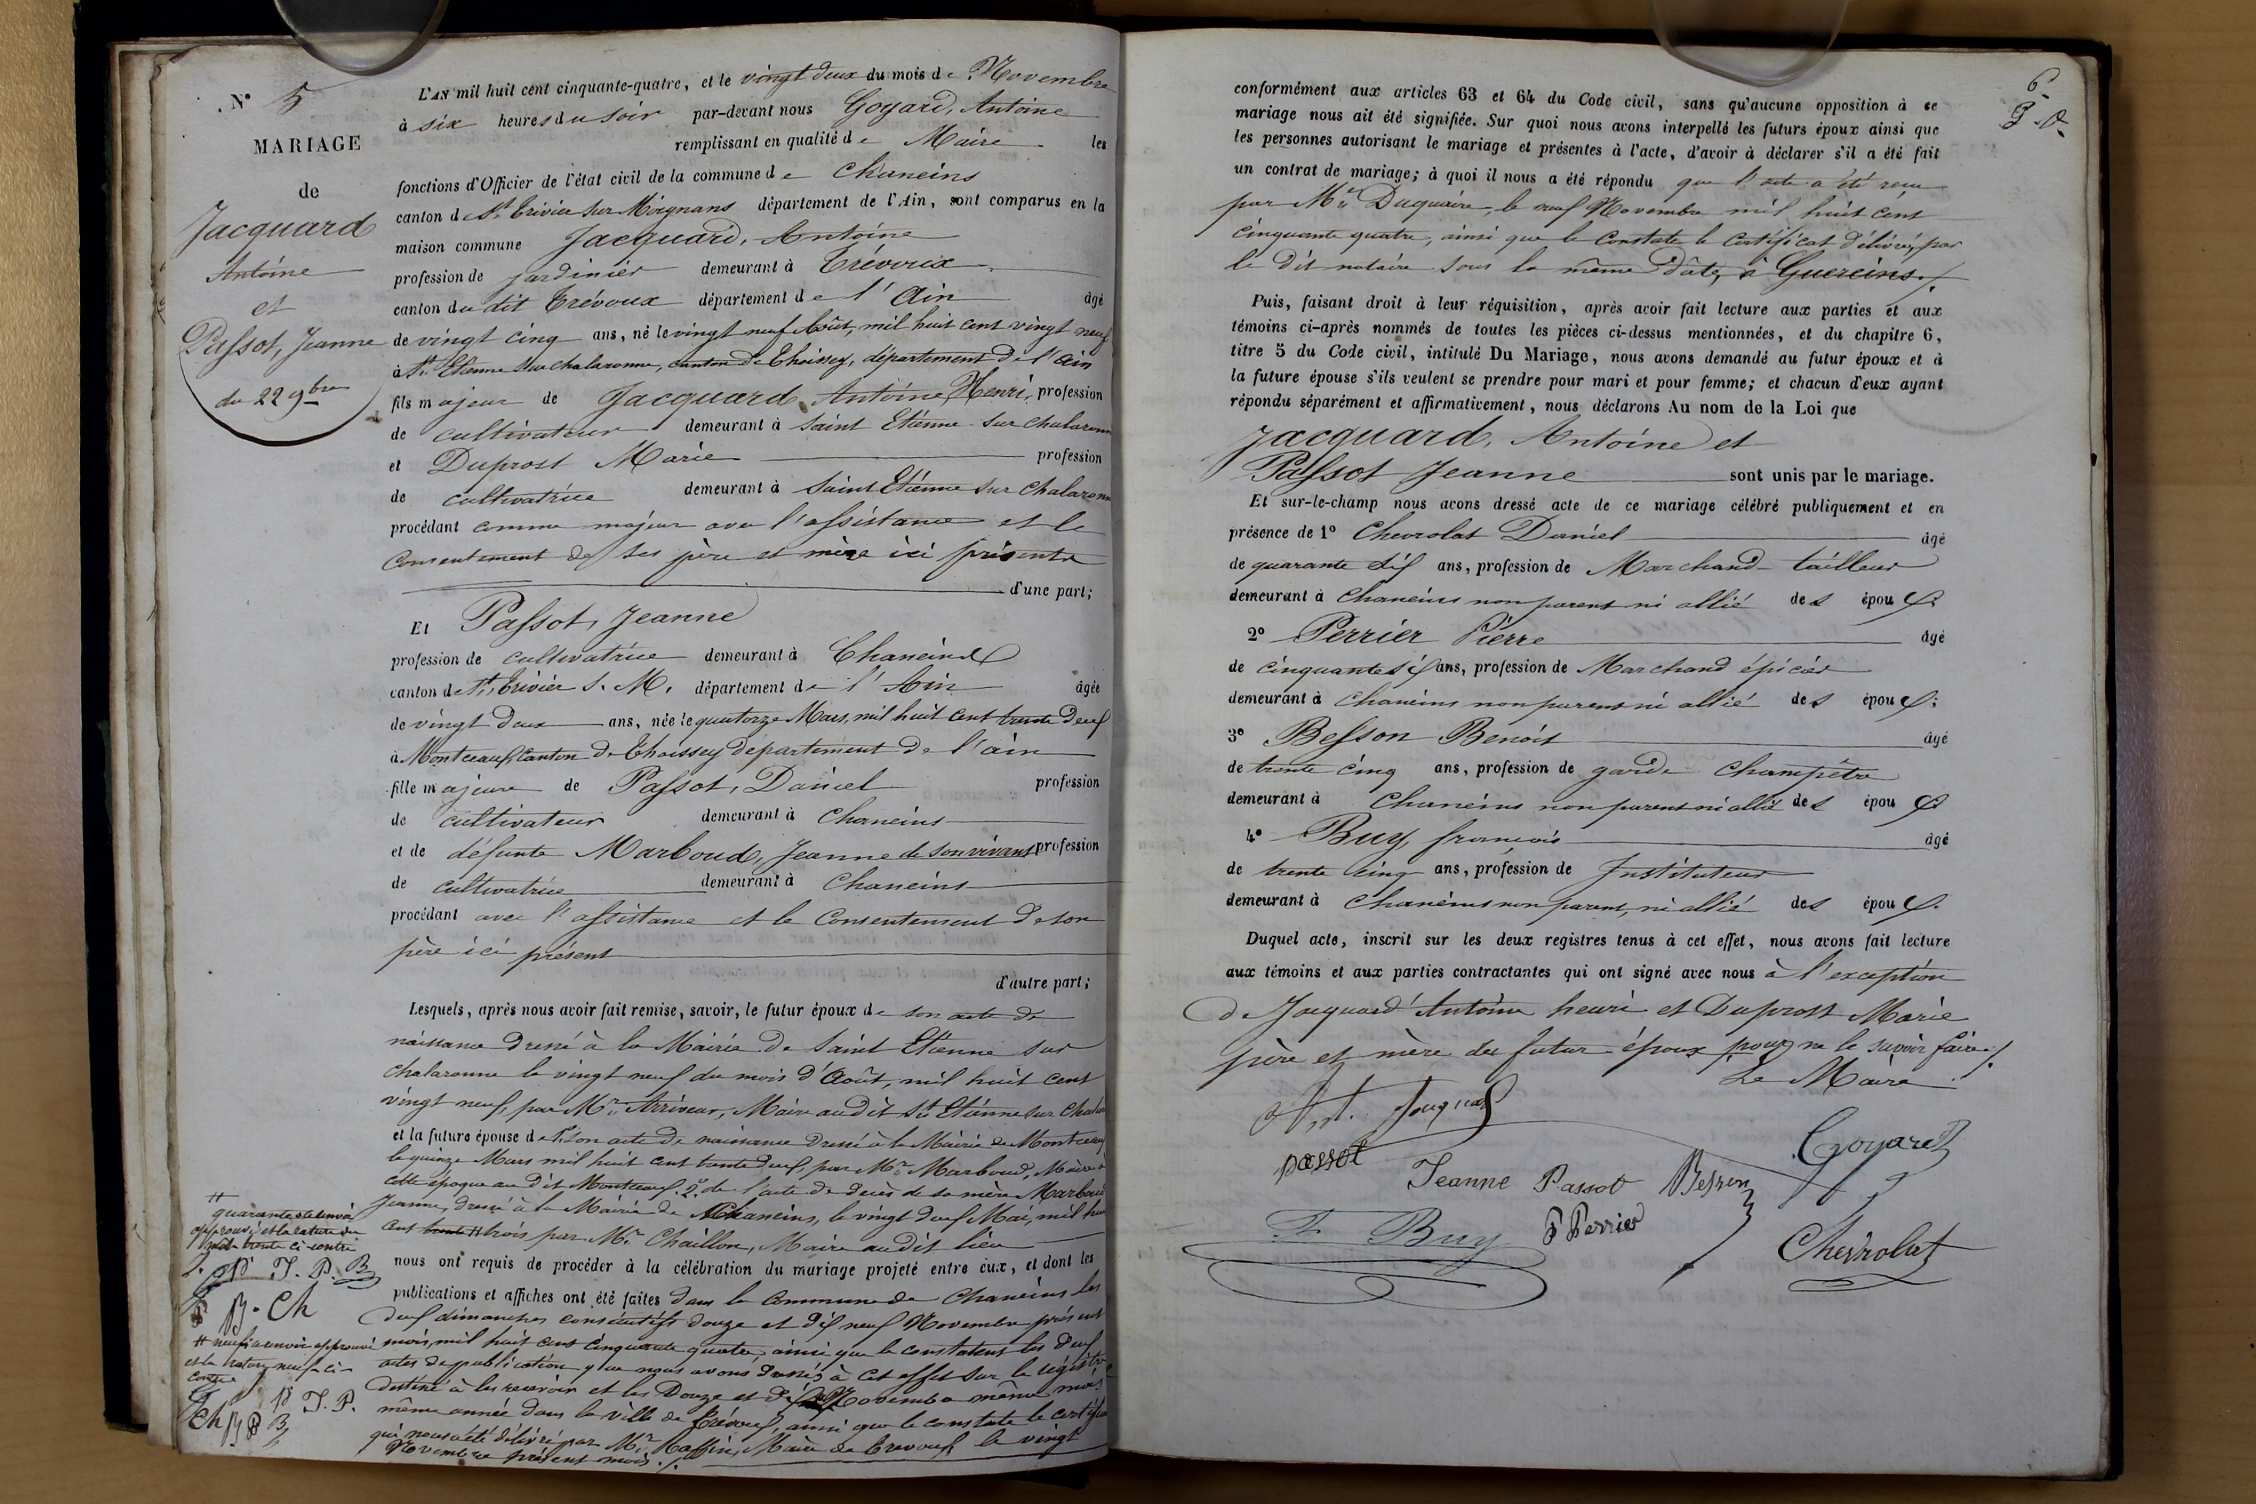 N° 5
MARIAGE
de
Jacquard
Antoine
et
Passot, Jeanne
du 22 9bre
L'AN mil huit cent cinquante-quatre, et le vingt deux du mois de Novembre
à six heures du soir par-devant nous Goyard, Antoine
remplissant en qualité de Maire les
fonctions d'Officier de l'état civil de la commune de Chaneins
canton de St Trivier sur Moignans département de l'Ain, sont comparus en la
maison commune Jacquard, Antoine
profession de jardinier demeurant à Trévoux
canton du dit Trévoux département de l'Ain âgé
de vingt cinq ans, né le vingt neuf Août, mil huit cent vingt neuf
à St Etienne sur chalaronne, canton de Thoissey, département de l'Ain
fils majeur de Jacquard, Antoine Henri, profession
de cultivateur demeurant à Saint Etienne sur chalaronne
et Duprost Marie profession
de cultivatrice demeurant à Saint Etienne sur Chalaronne
procédant comme majeur avec l'assistance et le
consentement de ses père et mère ici présents
d'une part;
Et Passot, Jeanne
profession de cultivatrice demeurant à Chaneins
canton de St Trivier s. M. département de l'Ain âgée
de vingt deux ans, née le quatorze Mars, mil huit cent trente deux
à Montceaux Canton de Thoissey département de l'ain
fille majeure de Passot, Daniel profession
de cultivateur demeurant à Chaneins
et de défunte Marboud, Jeanne de son vivant profession
de cultivatrice demeurant à Chaneins
procédant avec l'assistance et le Consentement de son
père ici présent
d'autre part;
Lesquels, après nous avoir fait remise, savoir, le futur époux de son acte de
naissance dressé à la Mairie de Saint Etienne sur
chalaronne le vingt neuf du mois d'Août, mil huit cent
vingt neuf, par Mr Arriveur, Maire audit St Etienne sur Chalar
et la future épouse de 1° son acte de naissance dressé à la Mairie de Montceaux
le quinze Mars mil huit cent trente deux, par Mr Marboud, Maire à
cette époque au dit Montceaux. 2° de l'acte de decès de sa mère Marboud
Jeanne, dressé à la Mairie de Chaneins, le vingt deux Mai, mil huit
cent trente # trois par Mr Chaillon, Maire audit lieu
nous ont requis de procéder à la célébration du mariage projeté entre eux, et dont les
publications et affiches ont été faites dans la Commune de Chaneins les
deux dimanches consécutifs douze et dix neuf Novembre présent
mois, mil huit cent cinquante quatre, ainsi que le constatent les deux
actes de publication que nous avons dressés à cet effet sur le registre
destiné à les recevoir et les Douze et dix # Novembre même mois
même année dans la ville de Trévoux, ainsi que le constate le certificat
qui nous a été délivré par Mr Raffin, Maire de Trevoux le vingt
Novembre présent mois ./.
#
quarante et le renvoi
approuvé et la rature du
mot trente ci-contre
P J. P. B
B. Ch
# neuf renvoi approuvé
et la rature neuf ci-
contre
P J. P.
Ch B
6
conformément aux articles 63 et 64 du Code civil, sans qu'aucune opposition à ce
mariage nous ait été signifiée. Sur quoi nous avons interpellé les futurs époux ainsi que
les personnes autorisant le mariage et présentes à l'acte, d'avoir à déclarer s'il a été fait
un contrat de mariage; à quoi il nous a été répondu que l'acte a été reçu
par Me Duquaire, le neuf Novembre mil huit cent
cinquante quatre, ainsi que le Constate le Certificat délivré par
le dit notaire sous la même date, à Guereins ./.
Puis, faisant droit à leur réquisition, après avoir fait lecture aux parties et aux
témoins ci-après nommés de toutes les pièces ci-dessus mentionnées, et du chapitre 6,
titre 5 du Code civil, intitulé Du Mariage, nous avons demandé au futur époux et à
la future épouse s'ils veulent se prendre pour mari et pour femme; et chacun d'eux ayant
répondu séparément et affirmativement, nous déclarons Au nom de la Loi que
Jacquard, Antoine et
Passot Jeanne sont unis par le mariage.
Et sur-le-champ nous avons dressé acte de ce mariage célébré publiquement et en
présence de 1° Chevrolat Daniel âgé
de quarante six ans, profession de Marchand tailleur
demeurant à Chaneins non parent ni allié des époux.
2° Perrier Pierre âgé
de cinquante six ans, profession de Marchand épicier
demeurant à Chaneins non parent ni allié des époux.
3° Besson Benoit âgé
de trente cinq ans, profession de garde Champêtre
demeurant à Chaneins non parent ni allié des époux
4° Buy, françois âgé
de trente cinq ans, profession de Instituteur
demeurant à Chaneins non parent, ni allié des époux.
Duquel acte, inscrit sur les deux registres tenus à cet effet, nous avons fait lecture
aux témoins et aux parties contractantes qui ont signé avec nous à l'exception
de Jacquard Antoine henri et Duprost Marie
père et mère du futur époux pour ne le savoir faire ./.
Le Maire
Ant. Jacquard
Goyard
passot
Jeanne Passot
Besson
F. Buy
P Perrier
Chevrolat